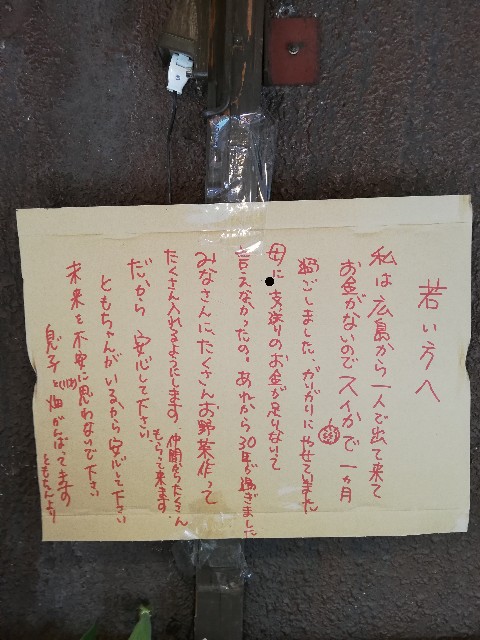 若い方へ
私は広島から一人で出て来て
お金がないのでスイカで一ヵ月
過ごしました、がりがりにやせていました
母に支送りのお金が足りないて
言えなかったの。あれから30年が過ぎました
みなさんに、たくさんお野菜作って
たくさん入れるようにします。仲間からたくさん
もらって来ます。
だから 安心して下さい
ともちゃんがいるから安心して下さい
未来を不安に思わないで下さい
息子と 畑がんばってます
ともちゃんより